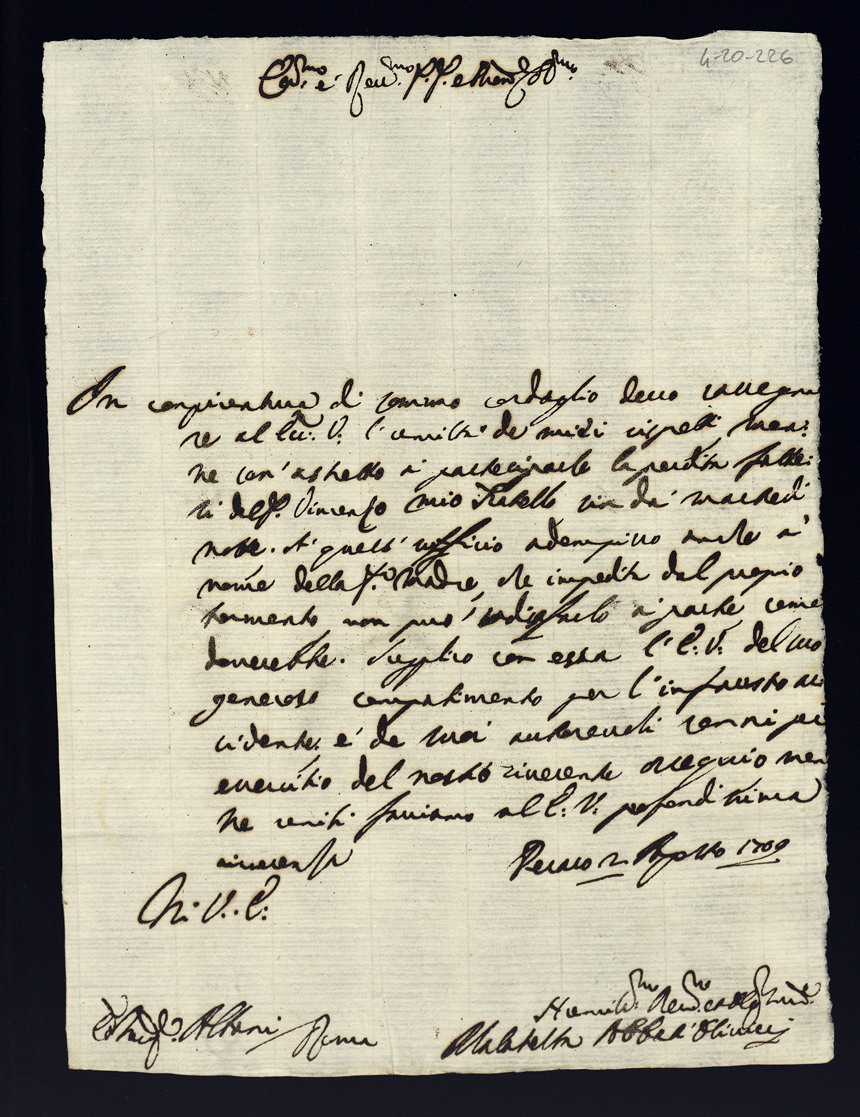 4-20-226
Em.mo e Rev.mo S.r S.r e Pron Col.mo
In congiuntura di sommo cordoglio devo rassegna
re all'Em: V: l'umiltà de miei rispetti, men:
ne con'astretto a parteciparle la perdita fattasi
del S.r Vincenzo mio Fratello
notte. A quest'uffizio adempisco anche a
nome della S.ra Madre, che impedita dal proprio
tormento non può sodisfarlo a parte come
doverebbe. Supplico con essa l'E: V: del suo
generoso compatimento per l'infausto ac
cidente, e de suoi autorevoli cenni per
esercitio del nostro riverente ossequio men
tre uniti facciamo all'E: V: profondissima
riverenza Pesaro 2 Agosto 1709
Di V. E:
Humiliss.mo Rev.mo et Oblig.mo
Em.o Sig.r Albani Roma
Malatesta Abbat' Olivieri